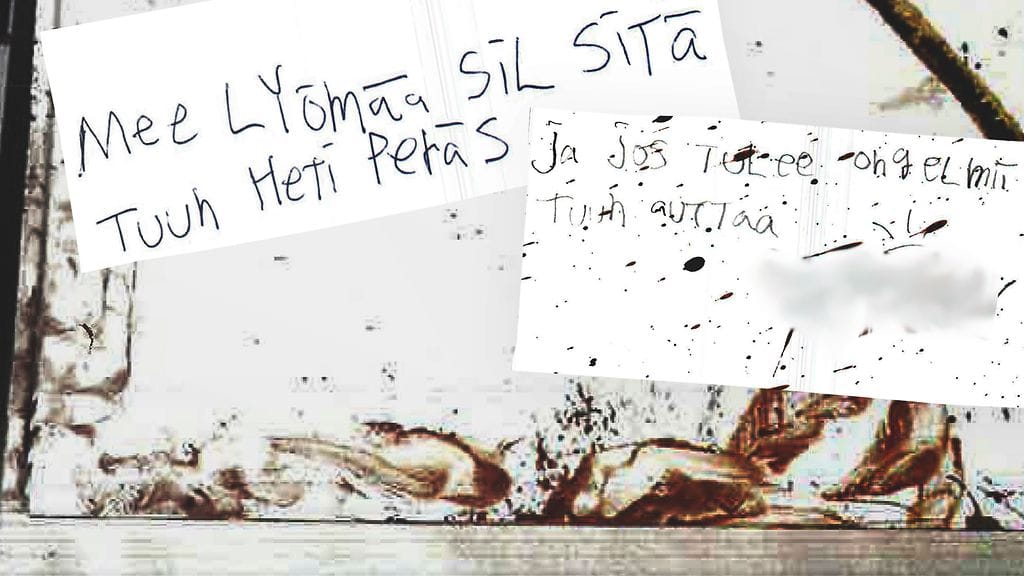 Mee LYömää SiL SiTä
TUUn HeTi PeräS
Ja JoS TULee ongeLmii
TUUn auTTaa